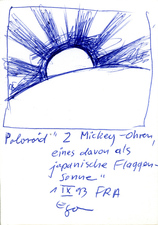 Polaroid " 2 Mickey-Ohren,
eines davon als
japanische Flaggen-
Sonne "
1 IX 93 FRA